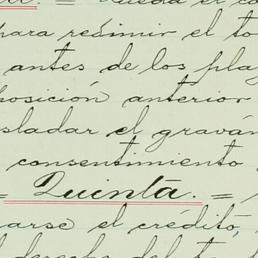 para redimir el to
antes de los pla
posición anterior
sladar el graván
consentimiento
= Quinta. =
arse el crédito,